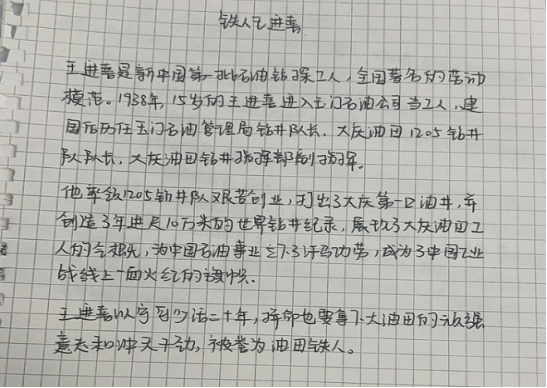 铁人王进喜
王进喜是新中国第一批石油钻探工人,全国著名的劳动
模范。1938年,15岁的王进喜进入玉门石油公司当工人,建
国后历任玉门石油管理局钻井队长、大庆油田1205钻井
队队长、大庆油田钻井指挥部副指挥。
他率领1205钻井队艰苦创业,打出了大庆第一口油井,并
创造了年进尺10万米的世界钻井纪录,展现了大庆油田工
人的气概,为中国石油事业立下了汗马功劳,成为了中国工业
战线上一面火红的旗帜。
王进喜以宁可少活二十年,拼命也要拿下大油田的顽强
意志和冲天干劲,被誉为油田铁人。